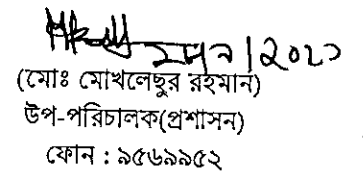 (মোঃ মোখলেছুর রহমান)
উপ-পরিচালক(প্রশাসন)
ফোন : ৯৫৬৯৯৫২